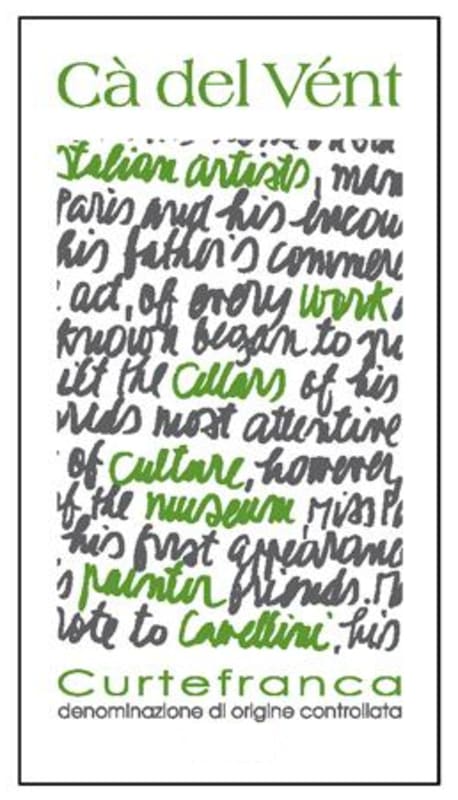 Cà del Vént
Italian artists, man
Paris and his encou
his father's commerc
act, of every work,
known began to
uilt the Cellars of his
most attentive
of culture, however,
of the museum, Miss P
his first appearanc
s painter friends. M
rote to Cavellini, his
Curtefranca
denominazione di origine controllata